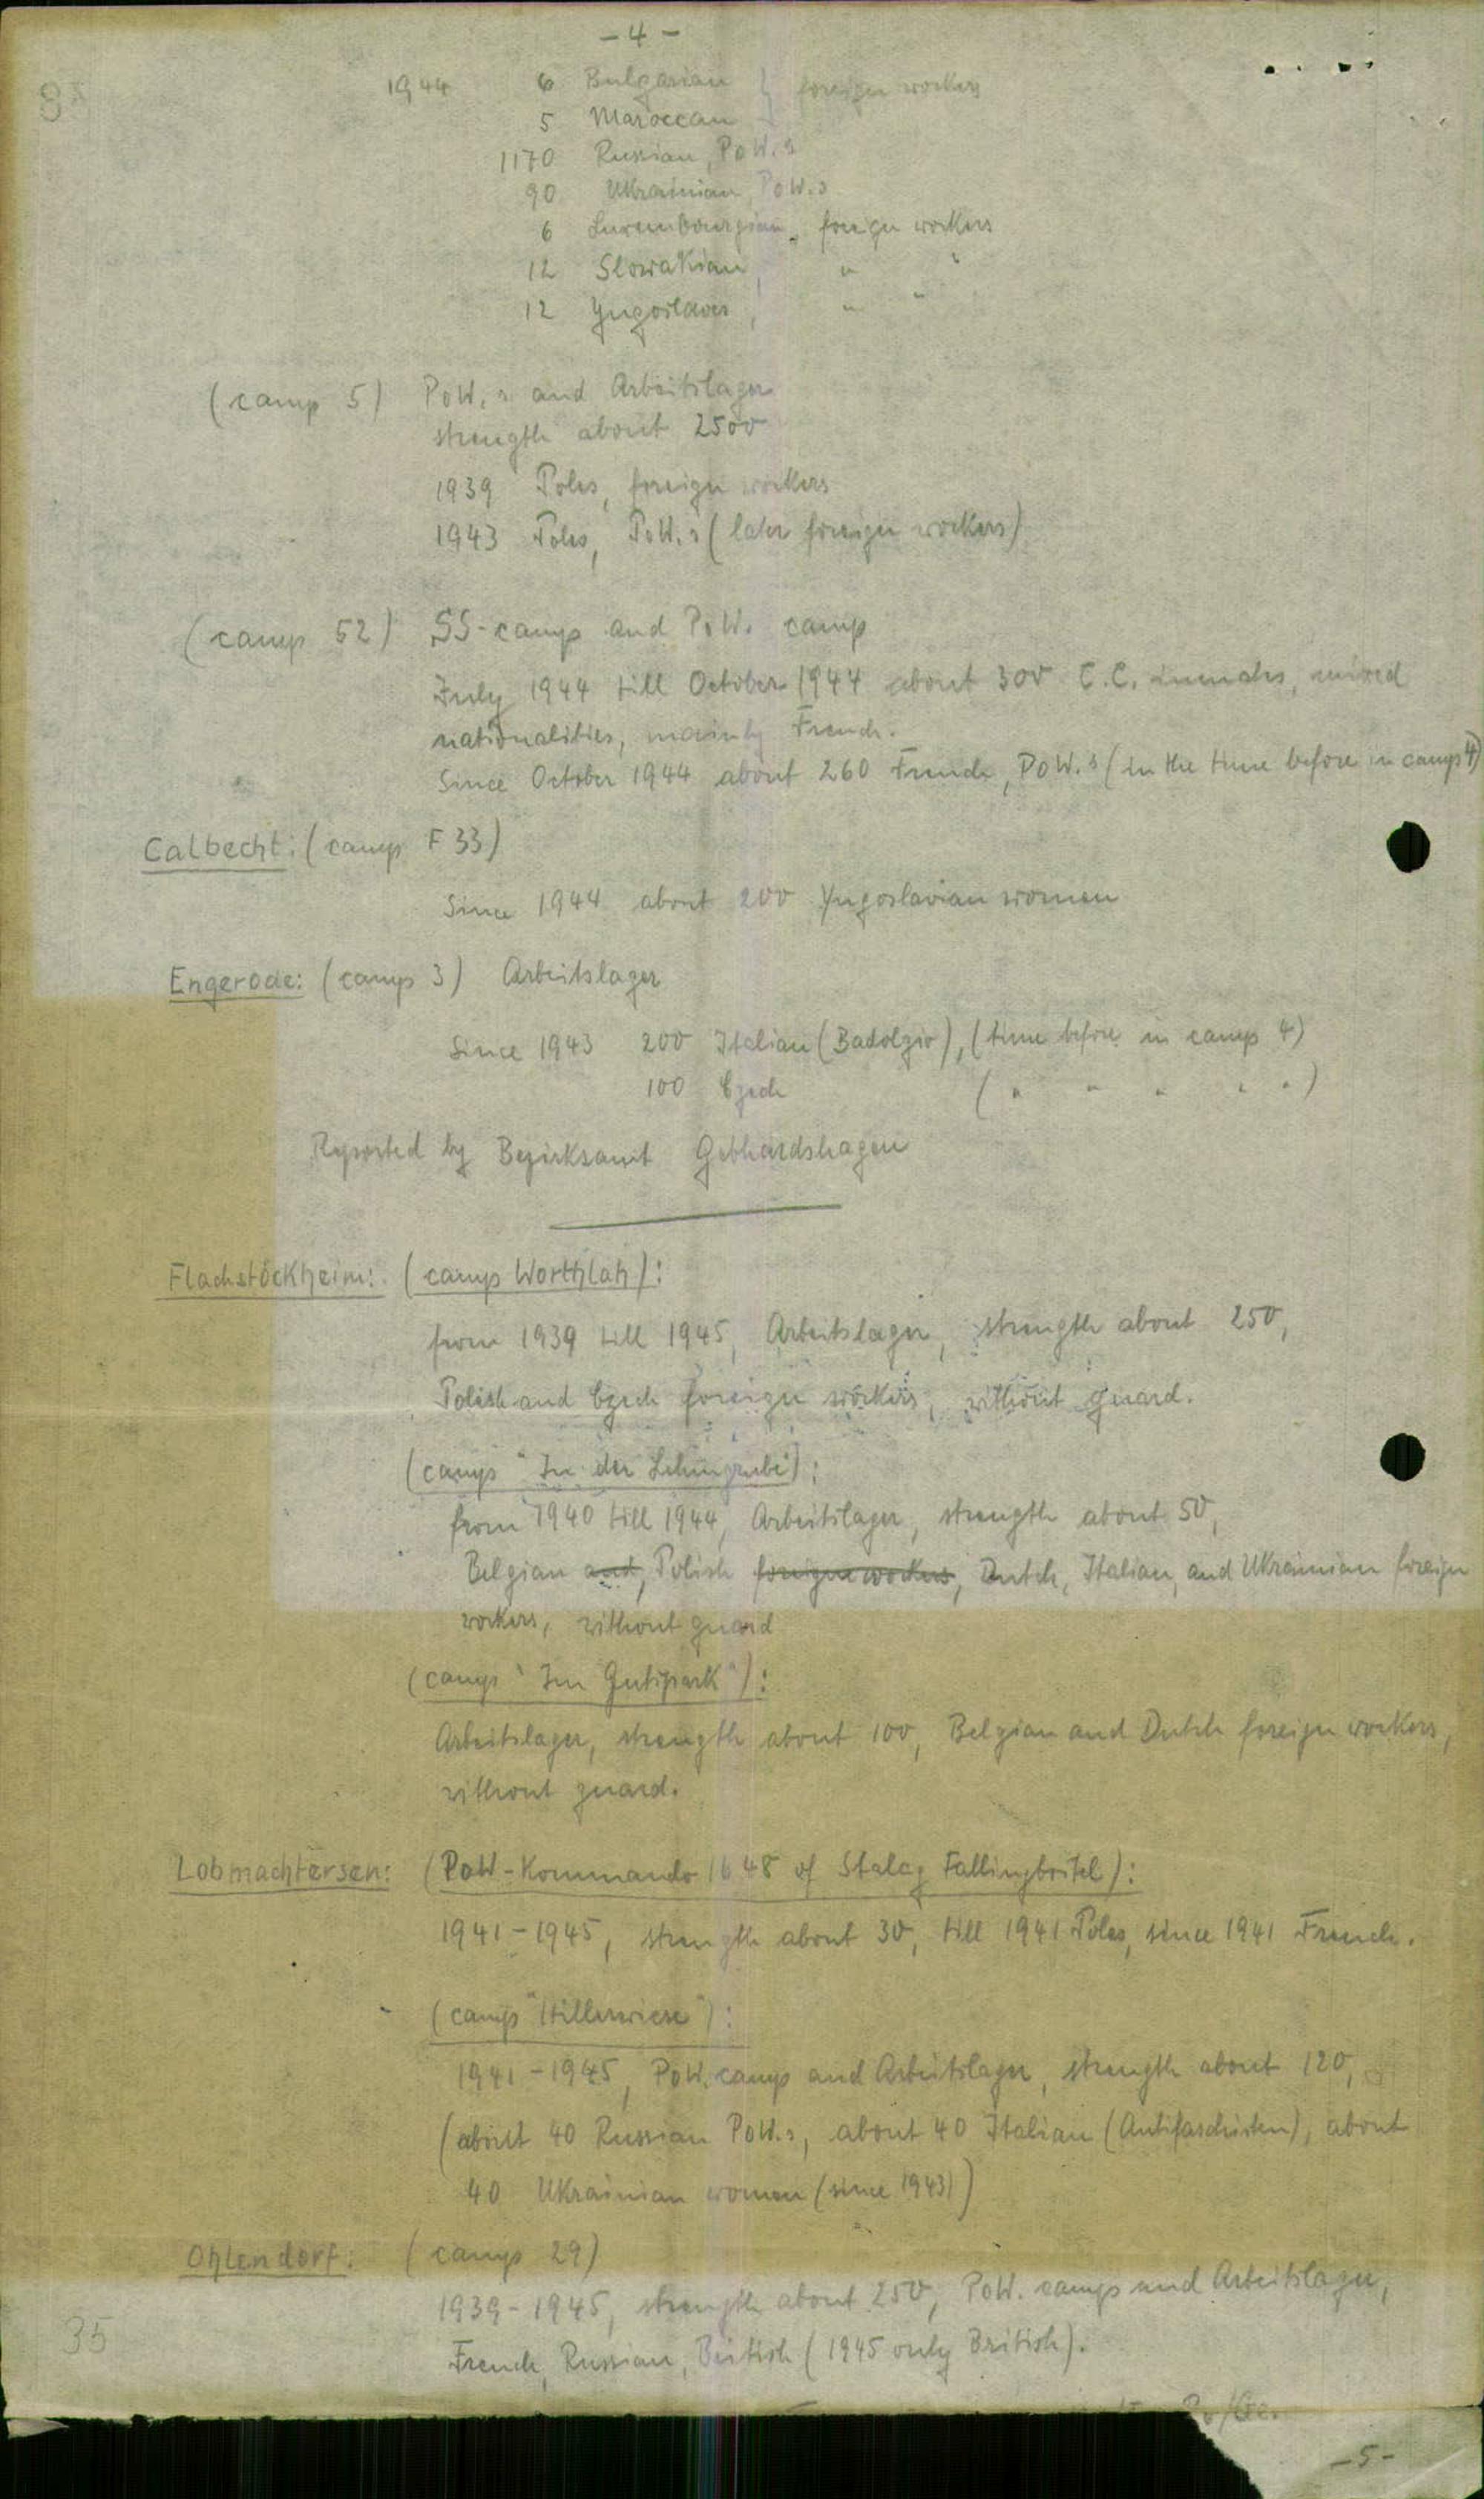 - 4 -
1944 6 Bulgarian } foreign workers
5 Maroccan
1170 Russian, PoW.s
90 Ukrainian, PoW.s
6 Luxembourgian, foreign workers
12 Slowakian, " "
12 Yugoslaves, " "
(camp 5) PoW.s and Arbeitslager
strength about 2500
1939 Poles, foreign workers
1943 Poles, PoW.s (later foreign workers)
(camp 52) SS-camp and PoW. camp
July 1944 till October 1944 about 300 C.C. inmates, mixed
nationalities, mainly French.
Since October 1944 about 260 French, PoW.s (in the time before in camp 4)
Calbecht: (camp F 33)
Since 1944 about 200 Yugoslavian women
Engerode: (camp 3) Arbeitslager
Since 1943 200 Italian (Badolgio), (time before in camp 4)
100 Czech ( " " " " " )
Reported by Bezirksamt Gebhardshagen
Flachstöckheim: (camp Worthlah):
from 1939 till 1945, Arbeitslager, strength about 250,
Polish and Czech foreign workers, without guard.
(camp "In der Lehmgrube"):
from 1940 till 1944, Arbeitslager, strength about 50,
Belgian and, Polish foreign workers, Dutch, Italian, and Ukrainian foreign
workers, without guard
(camp "Im Gutspark"):
Arbeitslager, strength about 100, Belgian and Dutch foreign workers,
without guard.
Lobmachtersen: (PoW-Kommando 1648 of Stalag Fallingbostel):
1941-1945, strength about 30, till 1941 Poles, since 1941 French.
(camp "Hillerwiese"):
1941-1945, PoW. camp and Arbeitslager, strength about 120,
(about 40 Russian PoW.s, about 40 Italian (Antifaschisten), about
40 Ukrainian women (since 1943))
Ohlendorf: (camp 29)
1939-1945, strength about 250, PoW. camp and Arbeitslager,
French, Russian, British (1945 only British).
35
-5-